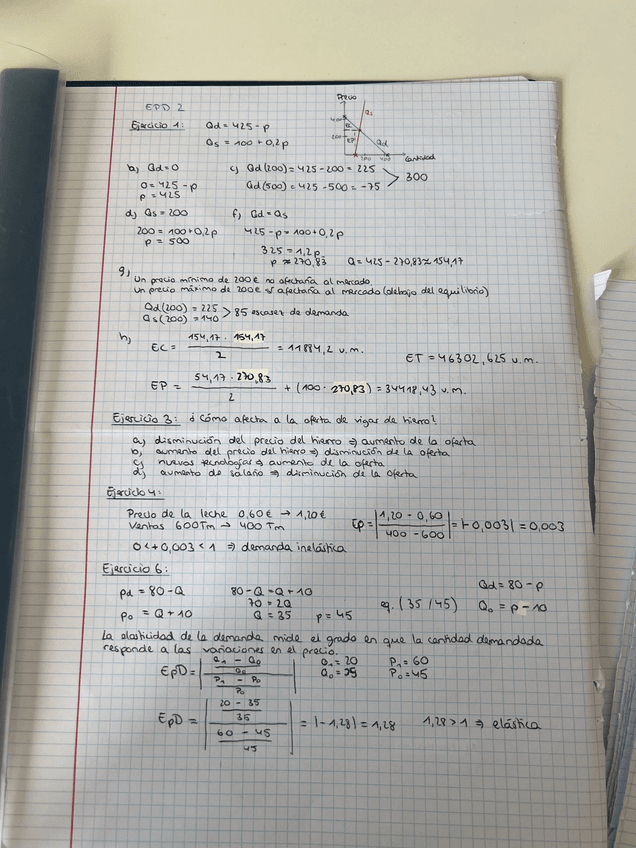 EPD 2
Ejercicio 1: Qd = 425 - p
Qs = 100 + 0,2p
Precio
Qs
400
200
EC
EP
Qd
200 400
Cantidad
b) Qd = 0
0 = 425 - p
p = 425
c) Qd (200) = 425 - 200 = 225
Qd (500) = 425 - 500 = -75
> 300
d) Qs = 200
200 = 100 + 0,2p
p = 500
f) Qd = Qs
425 - p = 100 + 0,2p
325 = 1,2p
p ≈ 270,83 Q = 425 - 270,83 ≈ 154,17
g) Un precio mínimo de 200€ no afectaría al mercado.
Un precio máximo de 200€ sí afectaría al mercado (debajo del equilibrio)
Qd (200) = 225
Qs (200) = 140
> 85 escasez de demanda
h) EC = 154,17 · 154,17 / 2 = 11884,2 u.m.
ET = 46302,625 u.m.
EP = 54,17 · 270,83 / 2 + (100 · 270,83) = 34418,43 u.m.
Ejercicio 3: ¿Cómo afecta a la oferta de vigas de hierro?
a) disminución del precio del hierro ⇒ aumento de la oferta
b) aumento del precio del hierro ⇒ disminución de la oferta
c) nuevas tecnologías ⇒ aumento de la oferta
d) aumento de salario ⇒ disminución de la oferta
Ejercicio 4:
Precio de la leche 0,60€ → 1,20€
Ventas 600Tm → 400 Tm
Ep = |1,20 - 0,60 / 400 - 600| = |-0,003| = 0,003
0 < +0,003 < 1 ⇒ demanda inelástica
Ejercicio 6:
pd = 80 - Q
po = Q + 10
80 - Q = Q + 10
70 = 2Q
Q = 35 p = 45
eq. (35 / 45)
Qd = 80 - p
Qo = p - 10
La elasticidad de la demanda mide el grado en que la cantidad demandada
responde a las variaciones en el precio.
EpD = |Q1 - Q0 / Q0 / P1 - P0 / P0|
Q1 = 20 P1 = 60
Q0 = 35 P0 = 45
EpD = |20 - 35 / 35 / 60 - 45 / 45| = |-1,28| = 1,28 1,28 > 1 ⇒ elástica